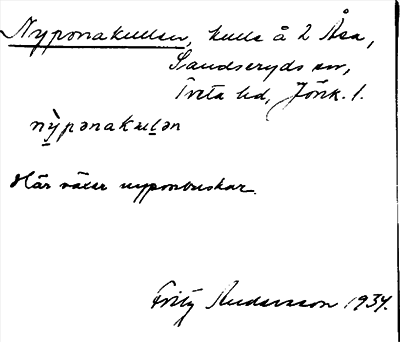 Nyponakullen, kulle å 2 Åsa,
Sandseryds sn,
Tveta hd, Jönk. l.
nỳpənakɯlən
Här växer nyponbuskar.
Fritz Andersson 1934.